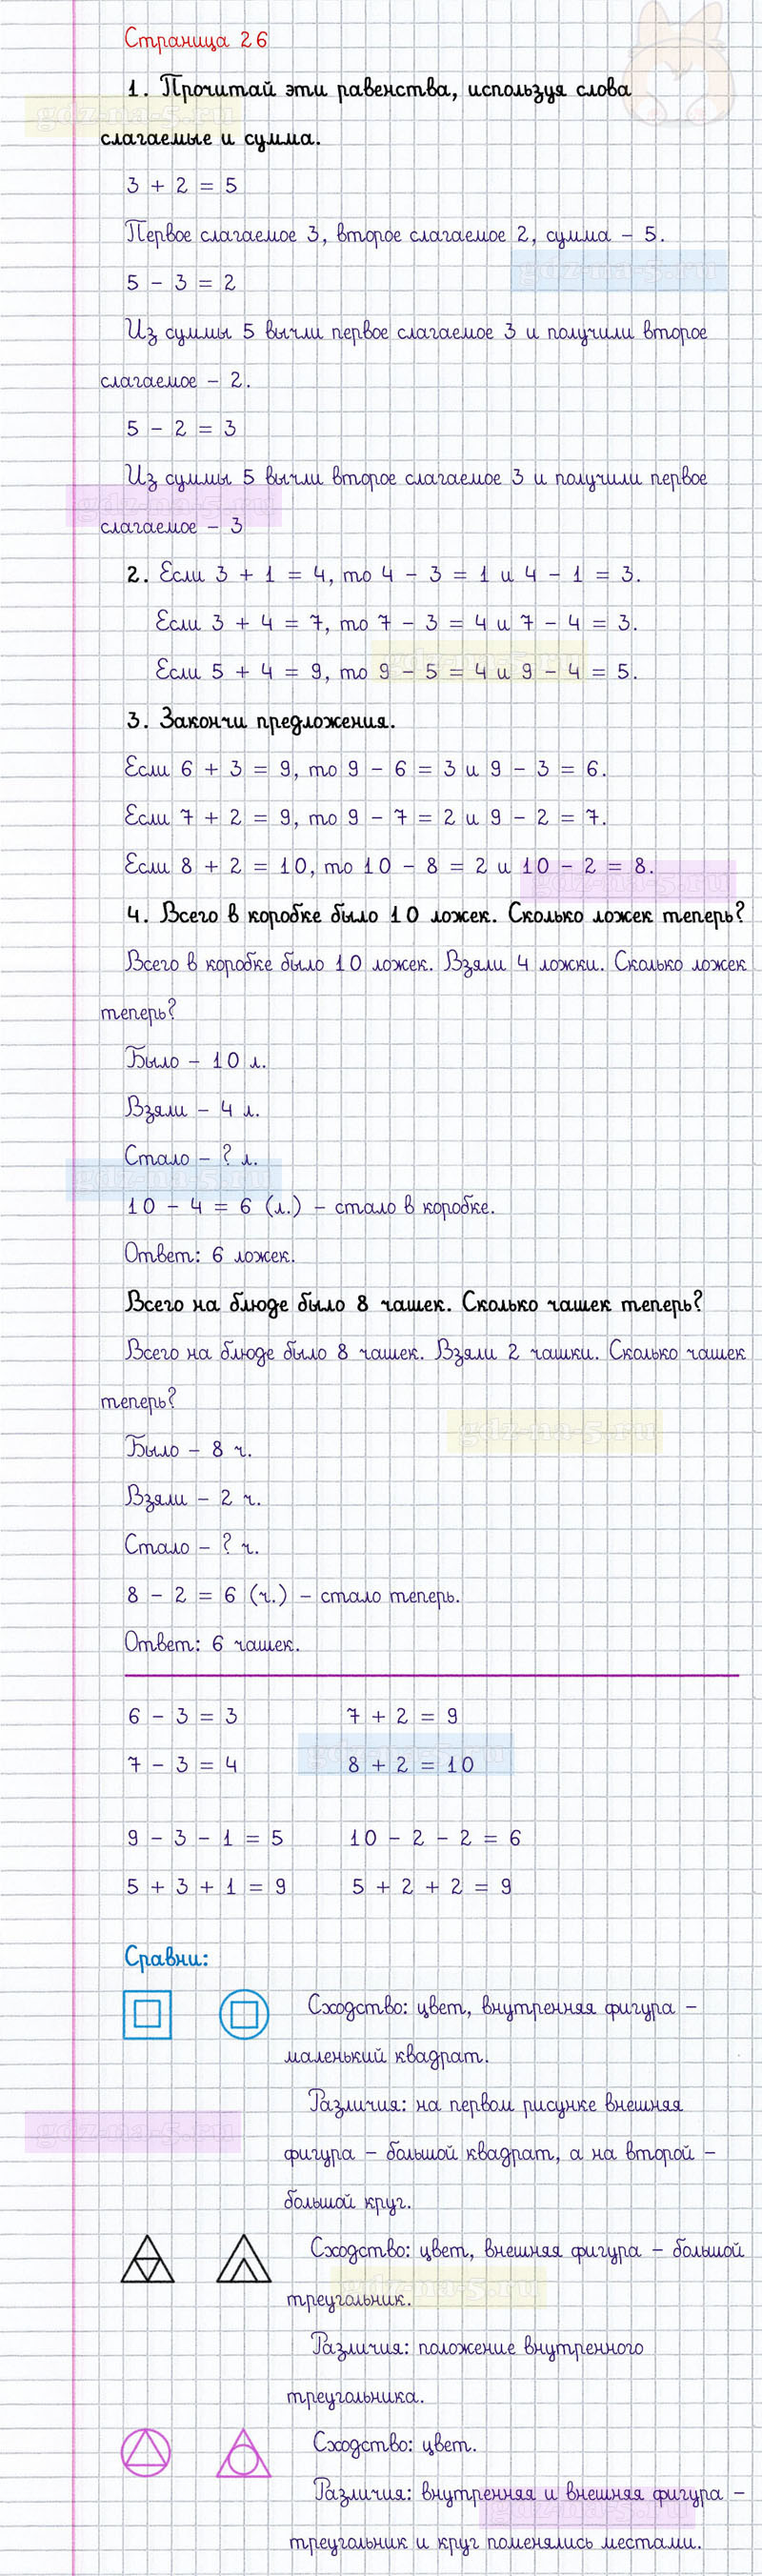 Страница 26
1. Прочитай эти равенства, используя слова
gdz-na-5.ru
слагаемые и сумма.
3 + 2 = 5
Первое слагаемое 3, второе слагаемое 2, сумма – 5.
gdz-na-5.ru
5 – 3 = 2
Из суммы 5 вычли первое слагаемое 3 и получили второе
слагаемое – 2.
5 – 2 = 3
Из суммы 5 вычли второе слагаемое 3 и получили первое
gdz-na-5.ru
слагаемое – 3
2. Если 3 + 1 = 4, то 4 – 3 = 1 и 4 – 1 = 3.
Если 3 + 4 = 7, то 7 – 3 = 4 и 7 – 4 = 3.
gdz-na-5.ru
Если 5 + 4 = 9, то 9 – 5 = 4 и 9 – 4 = 5.
3. Закончи предложения.
Если 6 + 3 = 9, то 9 – 6 = 3 и 9 – 3 = 6.
Если 7 + 2 = 9, то 9 – 7 = 2 и 9 – 2 = 7.
Если 8 + 2 = 10, то 10 – 8 = 2 и 10 – 2 = 8.
gdz-na-5.ru
4. Всего в коробке было 10 ложек. Сколько ложек теперь?
Всего в коробке было 10 ложек. Взяли 4 ложки. Сколько ложек
теперь?
Было – 10 л.
Взяли – 4 л.
Стало – ? л.
gdz-na-5.ru
10 – 4 = 6 (л.) – стало в коробке.
Ответ: 6 ложек.
Всего на блюде было 8 чашек. Сколько чашек теперь?
Всего на блюде было 8 чашек. Взяли 2 чашки. Сколько чашек
теперь?
gdz-na-5.ru
Было – 8 ч.
Взяли – 2 ч.
Стало – ? ч.
8 – 2 = 6 (ч.) – стало теперь.
Ответ: 6 чашек.
6 – 3 = 3 7 + 2 = 9
gdz-na-5.ru
7 – 3 = 4 8 + 2 = 10
9 – 3 – 1 = 5 10 – 2 – 2 = 6
5 + 3 + 1 = 9 5 + 2 + 2 = 9
Сравни:
Сходство: цвет, внутренняя фигура –
маленький квадрат.
Различия: на первом рисунке внешняя
gdz-na-5.ru
фигура – большой квадрат, а на второй –
большой круг.
Сходство: цвет, внешняя фигура – большой
gdz-na-5.ru
треугольник.
Различия: положение внутренного
треугольника.
Сходство: цвет.
Различия: внутренняя и внешняя фигура –
gdz-na-5.ru
треугольник и круг поменялись местами.